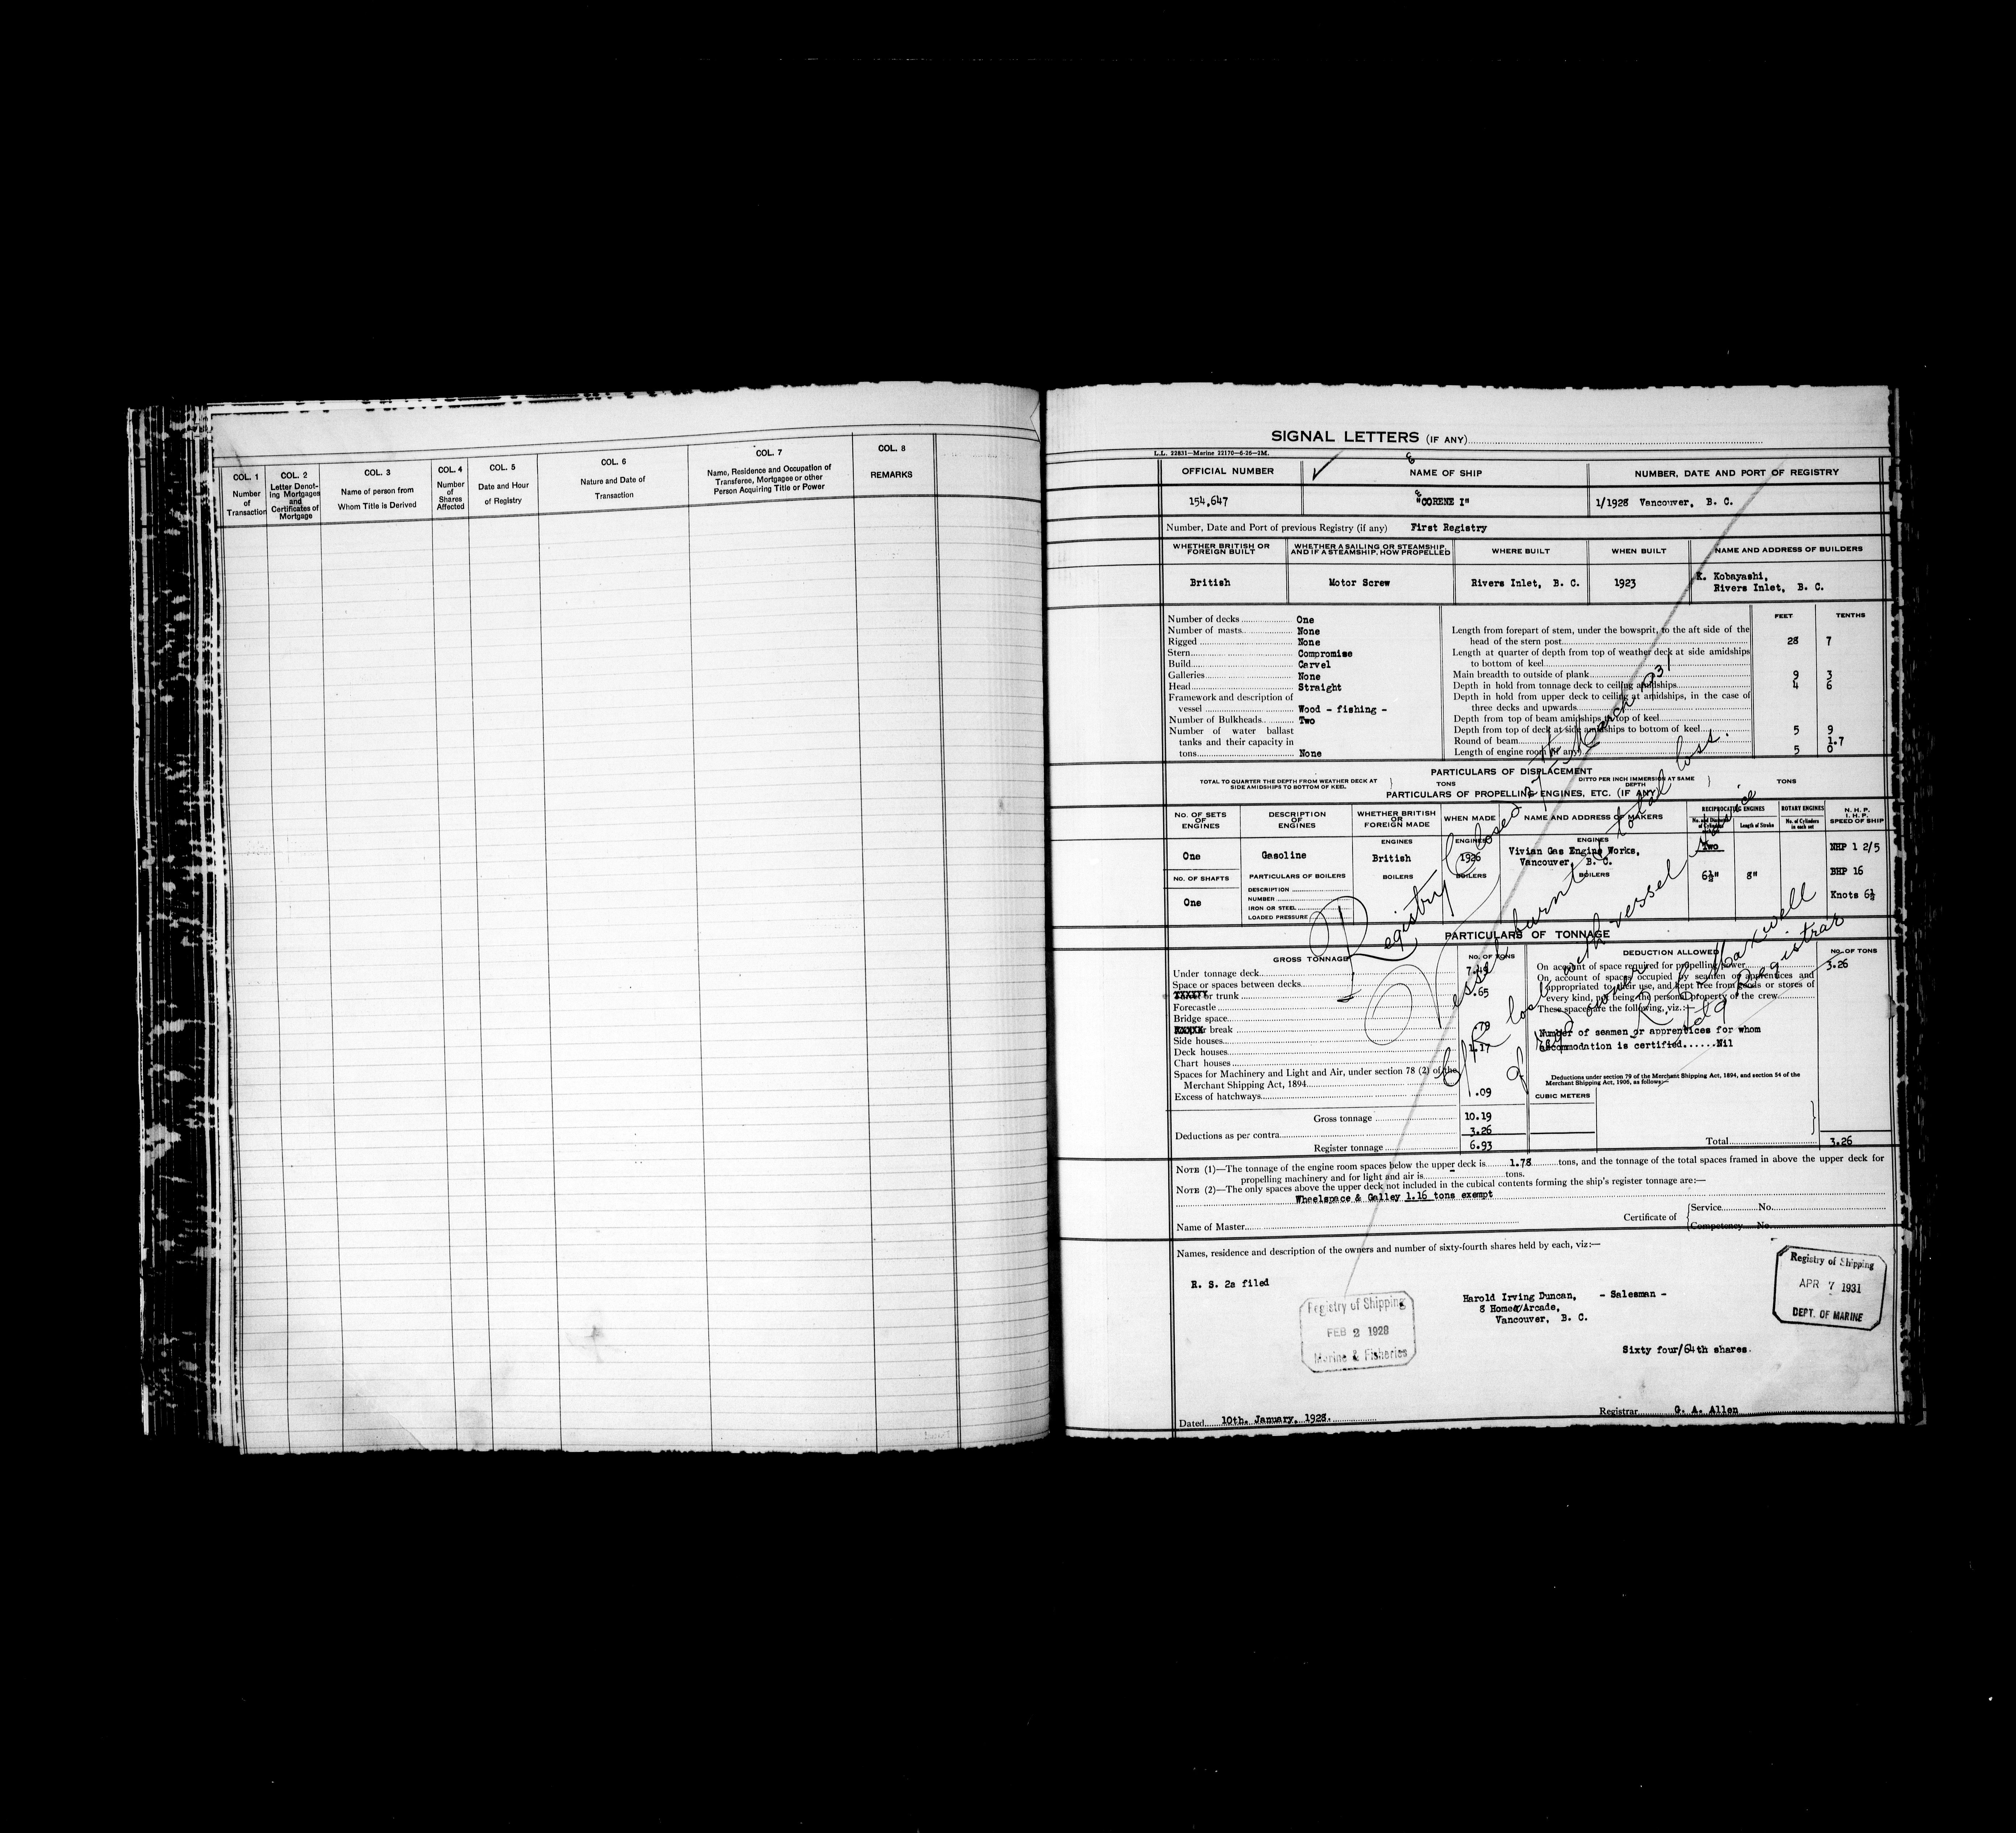 COL. 1
Number
of
Transaction
COL. 2
Letter Denot-
ing Mortgages
and
Certificates of
Mortgage
COL. 3
Name of person from
Whom Title is Derived
COL. 4
Number
of
Shares
Affected
COL. 5
Date and Hour
of Registry
COL. 6
Nature and Date of
Transaction
COL. 7
Name, Residence and Occupation of
Transferee, Mortgagee or other
Person Acquiring Title or Power
COL. 8
REMARKS
SIGNAL LETTERS (IF ANY)
L.L. 22831—Marine 22170—6-26—2M.
OFFICIAL NUMBER
NAME OF SHIP
NUMBER, DATE AND PORT OF REGISTRY
154,647
"CORENE I"
1/1928 Vancouver, B. C.
Number, Date and Port of previous Registry (if any) First Registry
WHETHER BRITISH OR
FOREIGN BUILT
WHETHER A SAILING OR STEAMSHIP,
AND IF A STEAMSHIP, HOW PROPELLED
WHERE BUILT
WHEN BUILT
NAME AND ADDRESS OF BUILDERS
British
Motor Screw
Rivers Inlet, B. C.
1923
K. Kobayashi,
Rivers Inlet, B. C.
FEET TENTHS
Number of decks One
Number of masts None
Rigged None
Stern Compromise
Build Carvel
Galleries None
Head Straight
Framework and description of
vessel Wood - fishing -
Number of Bulkheads Two
Number of water ballast
tanks and their capacity in
tons None
Length from forepart of stem, under the bowsprit, to the aft side of the
head of the stern post 28 7
Length at quarter of depth from top of weather deck at side amidships
to bottom of keel
Main breadth to outside of plank 9 3
Depth in hold from tonnage deck to ceiling amidships 4 6
Depth in hold from upper deck to ceiling at amidships, in the case of
three decks and upwards
Depth from top of beam amidships to top of keel
Depth from top of deck at side amidships to bottom of keel 5 9
Round of beam 1.7
Length of engine room (if any) 5 0
PARTICULARS OF DISPLACEMENT
TOTAL TO QUARTER THE DEPTH FROM WEATHER DECK AT
SIDE AMIDSHIPS TO BOTTOM OF KEEL
TONS
DITTO PER INCH IMMERSION AT SAME
DEPTH
TONS
PARTICULARS OF PROPELLING ENGINES, ETC. (IF ANY)
No. OF SETS
OF
ENGINES
DESCRIPTION
OF
ENGINES
WHETHER BRITISH
OR
FOREIGN MADE
WHEN MADE
NAME AND ADDRESS OF MAKERS
RECIPROCATING ENGINES
Length of Stroke
ROTARY ENGINES
No. of Cylinders
in each set
N. H. P.
I. H. P.
SPEED OF SHIP
ENGINES
ENGINES
ENGINES
One
Gasoline
British
1926
Vivian Gas Engine Works,
Vancouver, B. C.
Two
NHP 1 2/5
NO. OF SHAFTS
PARTICULARS OF BOILERS
BOILERS
BOILERS
BOILERS
6½"
8"
BHP 16
One
DESCRIPTION
NUMBER
IRON OR STEEL
LOADED PRESSURE
Knots 6½
Registry Closed 27th March 1931
Vessel burnt total loss.
C/R lost with vessel Advice
of reg'd owner
R. C. Maxwell
Actg Registrar
PARTICULARS OF TONNAGE
GROSS TONNAGE
NO. OF TONS
DEDUCTION ALLOWED
NO. OF TONS
Under tonnage deck 7.49
Space or spaces between decks
or trunk .65
Forecastle
Bridge space
or break .79
Side houses
Deck houses 1.17
Chart houses
Spaces for Machinery and Light and Air, under section 78 (2) of the
Merchant Shipping Act, 1894
Excess of hatchways .09
Gross tonnage 10.19
Deductions as per contra 3.26
Register tonnage 6.93
On account of space required for propelling power 3.26
On account of spaces occupied by seamen or apprentices and
appropriated to their use, and kept free from goods or stores of
every kind, not being the personal property of the crew
These spaces are the following, viz.:—
Number of seamen or apprentices for whom
accommodation is certified......Nil
Deductions under section 79 of the Merchant Shipping Act, 1894, and section 54 of the
Merchant Shipping Act, 1906, as follows:—
CUBIC METERS
Total 3.26
NOTE (1)—The tonnage of the engine room spaces below the upper deck is 1.78 tons, and the tonnage of the total spaces framed in above the upper deck for
propelling machinery and for light and air is tons.
NOTE (2)—The only spaces above the upper deck not included in the cubical contents forming the ship's register tonnage are:—
Wheelspace & Galley 1.16 tons exempt
Name of Master
Certificate of
Service No.
Competency No.
Names, residence and description of the owners and number of sixty-fourth shares held by each, viz:—
R. S. 2a filed
Harold Irving Duncan, - Salesman -
8 Homer Arcade,
Vancouver, B. C.
Sixty four/64th shares.
Registry of Shipping
FEB 2 1928
Marine & Fisheries
Registry of Shipping
APR 7 1931
DEPT. OF MARINE
Dated 10th. January, 1928.
Registrar G. A. Allen